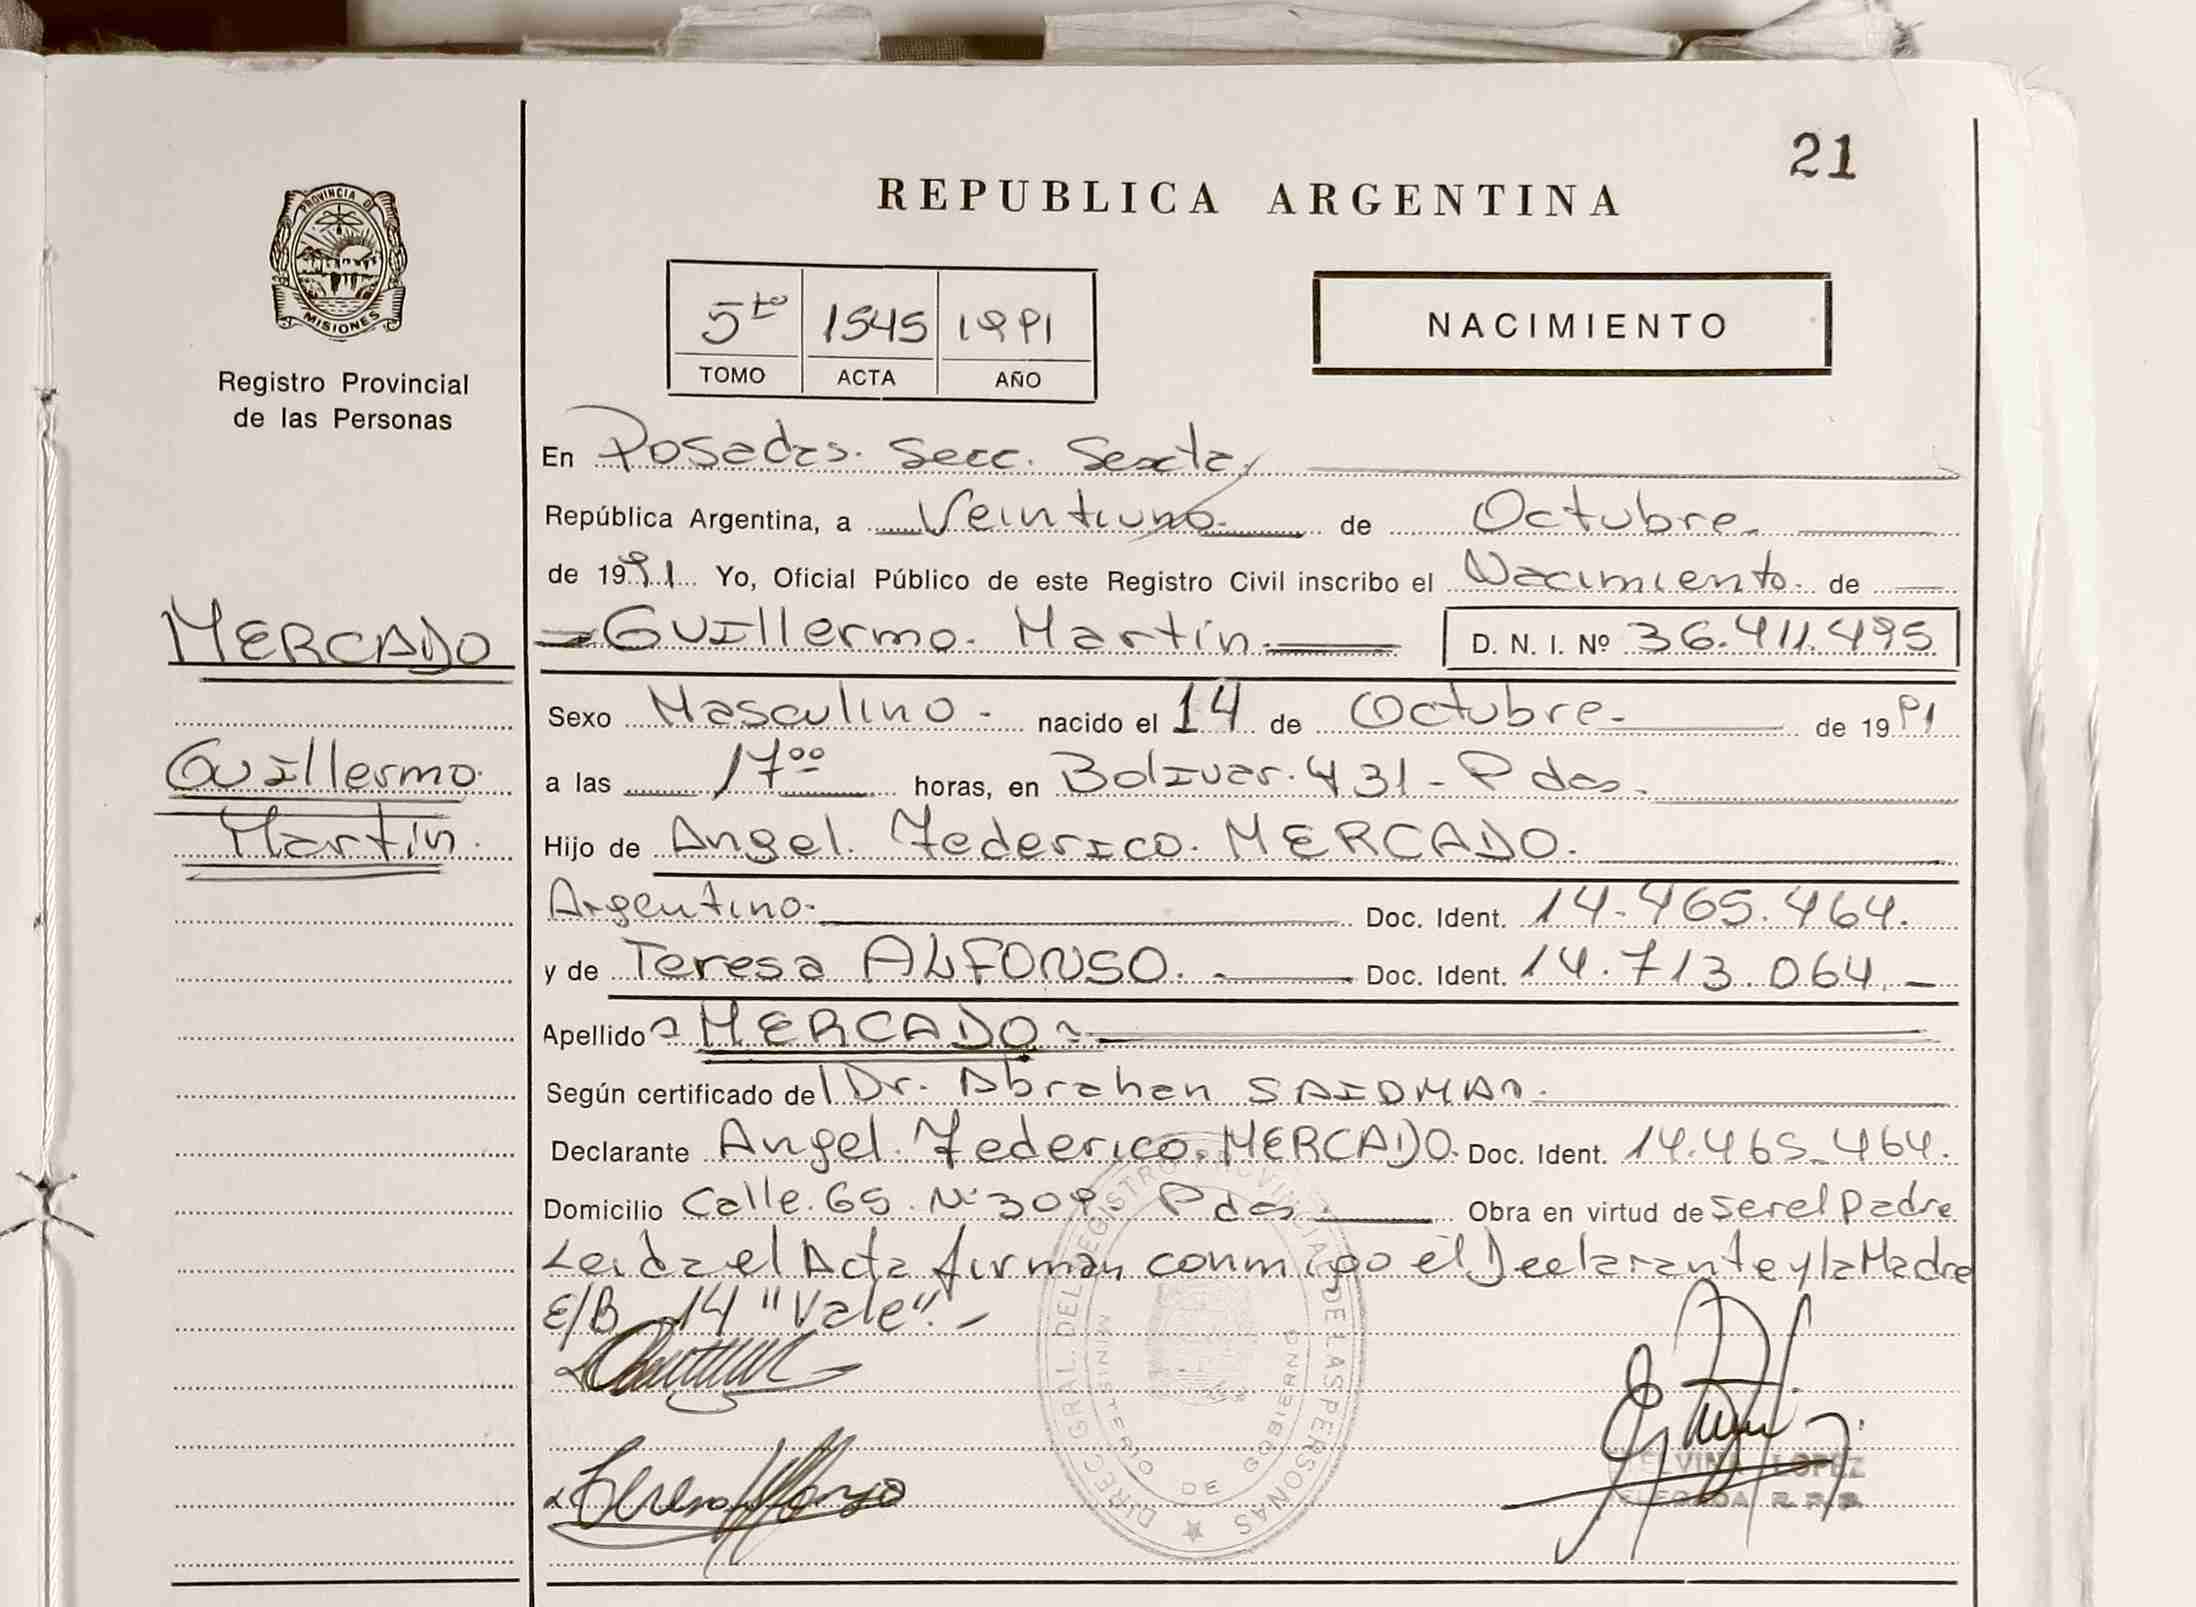 21
REPUBLICA ARGENTINA
PROVINCIA D
MISIONES
Registro Provincial
de las Personas
5to 1545 1991
TOMO ACTA AÑO
NACIMIENTO
En Posadas. Secc. Sexta,
República Argentina, a Veintiuno de Octubre.
de 1991 Yo, Oficial Público de este Registro Civil inscribo el Nacimiento. de
MERCADO
Guillermo.
Martín.
Guillermo. Martín. D. N. I. Nº 36.411.495
Sexo Masculino - nacido el 14 de Octubre. de 1991
a las 17oo horas, en Bolivar. 431 - Pdas.
Hijo de Angel. Federico. MERCADO.
Argentino. Doc. Ident. 14.465.464.
y de Teresa ALFONSO. Doc. Ident. 14.713.064. -
Apellido MERCADO
Según certificado del Dr. Abrahan SAIDMAN.
Declarante Angel. Federico. MERCADO. Doc. Ident. 14.465.464.
Domicilio Calle. 65. Nº 309. Pdas. Obra en virtud de ser el padre
Leida el Acta firman conmigo el Declarante y la Madre
E/B 14 "Vale". -
Teresa Alfonso
DIREC. GRAL. DEL REGISTRO PROVINCIAL DE LAS PERSONAS
MINISTERIO DE GOBIERNO
ELVINA LOPEZ